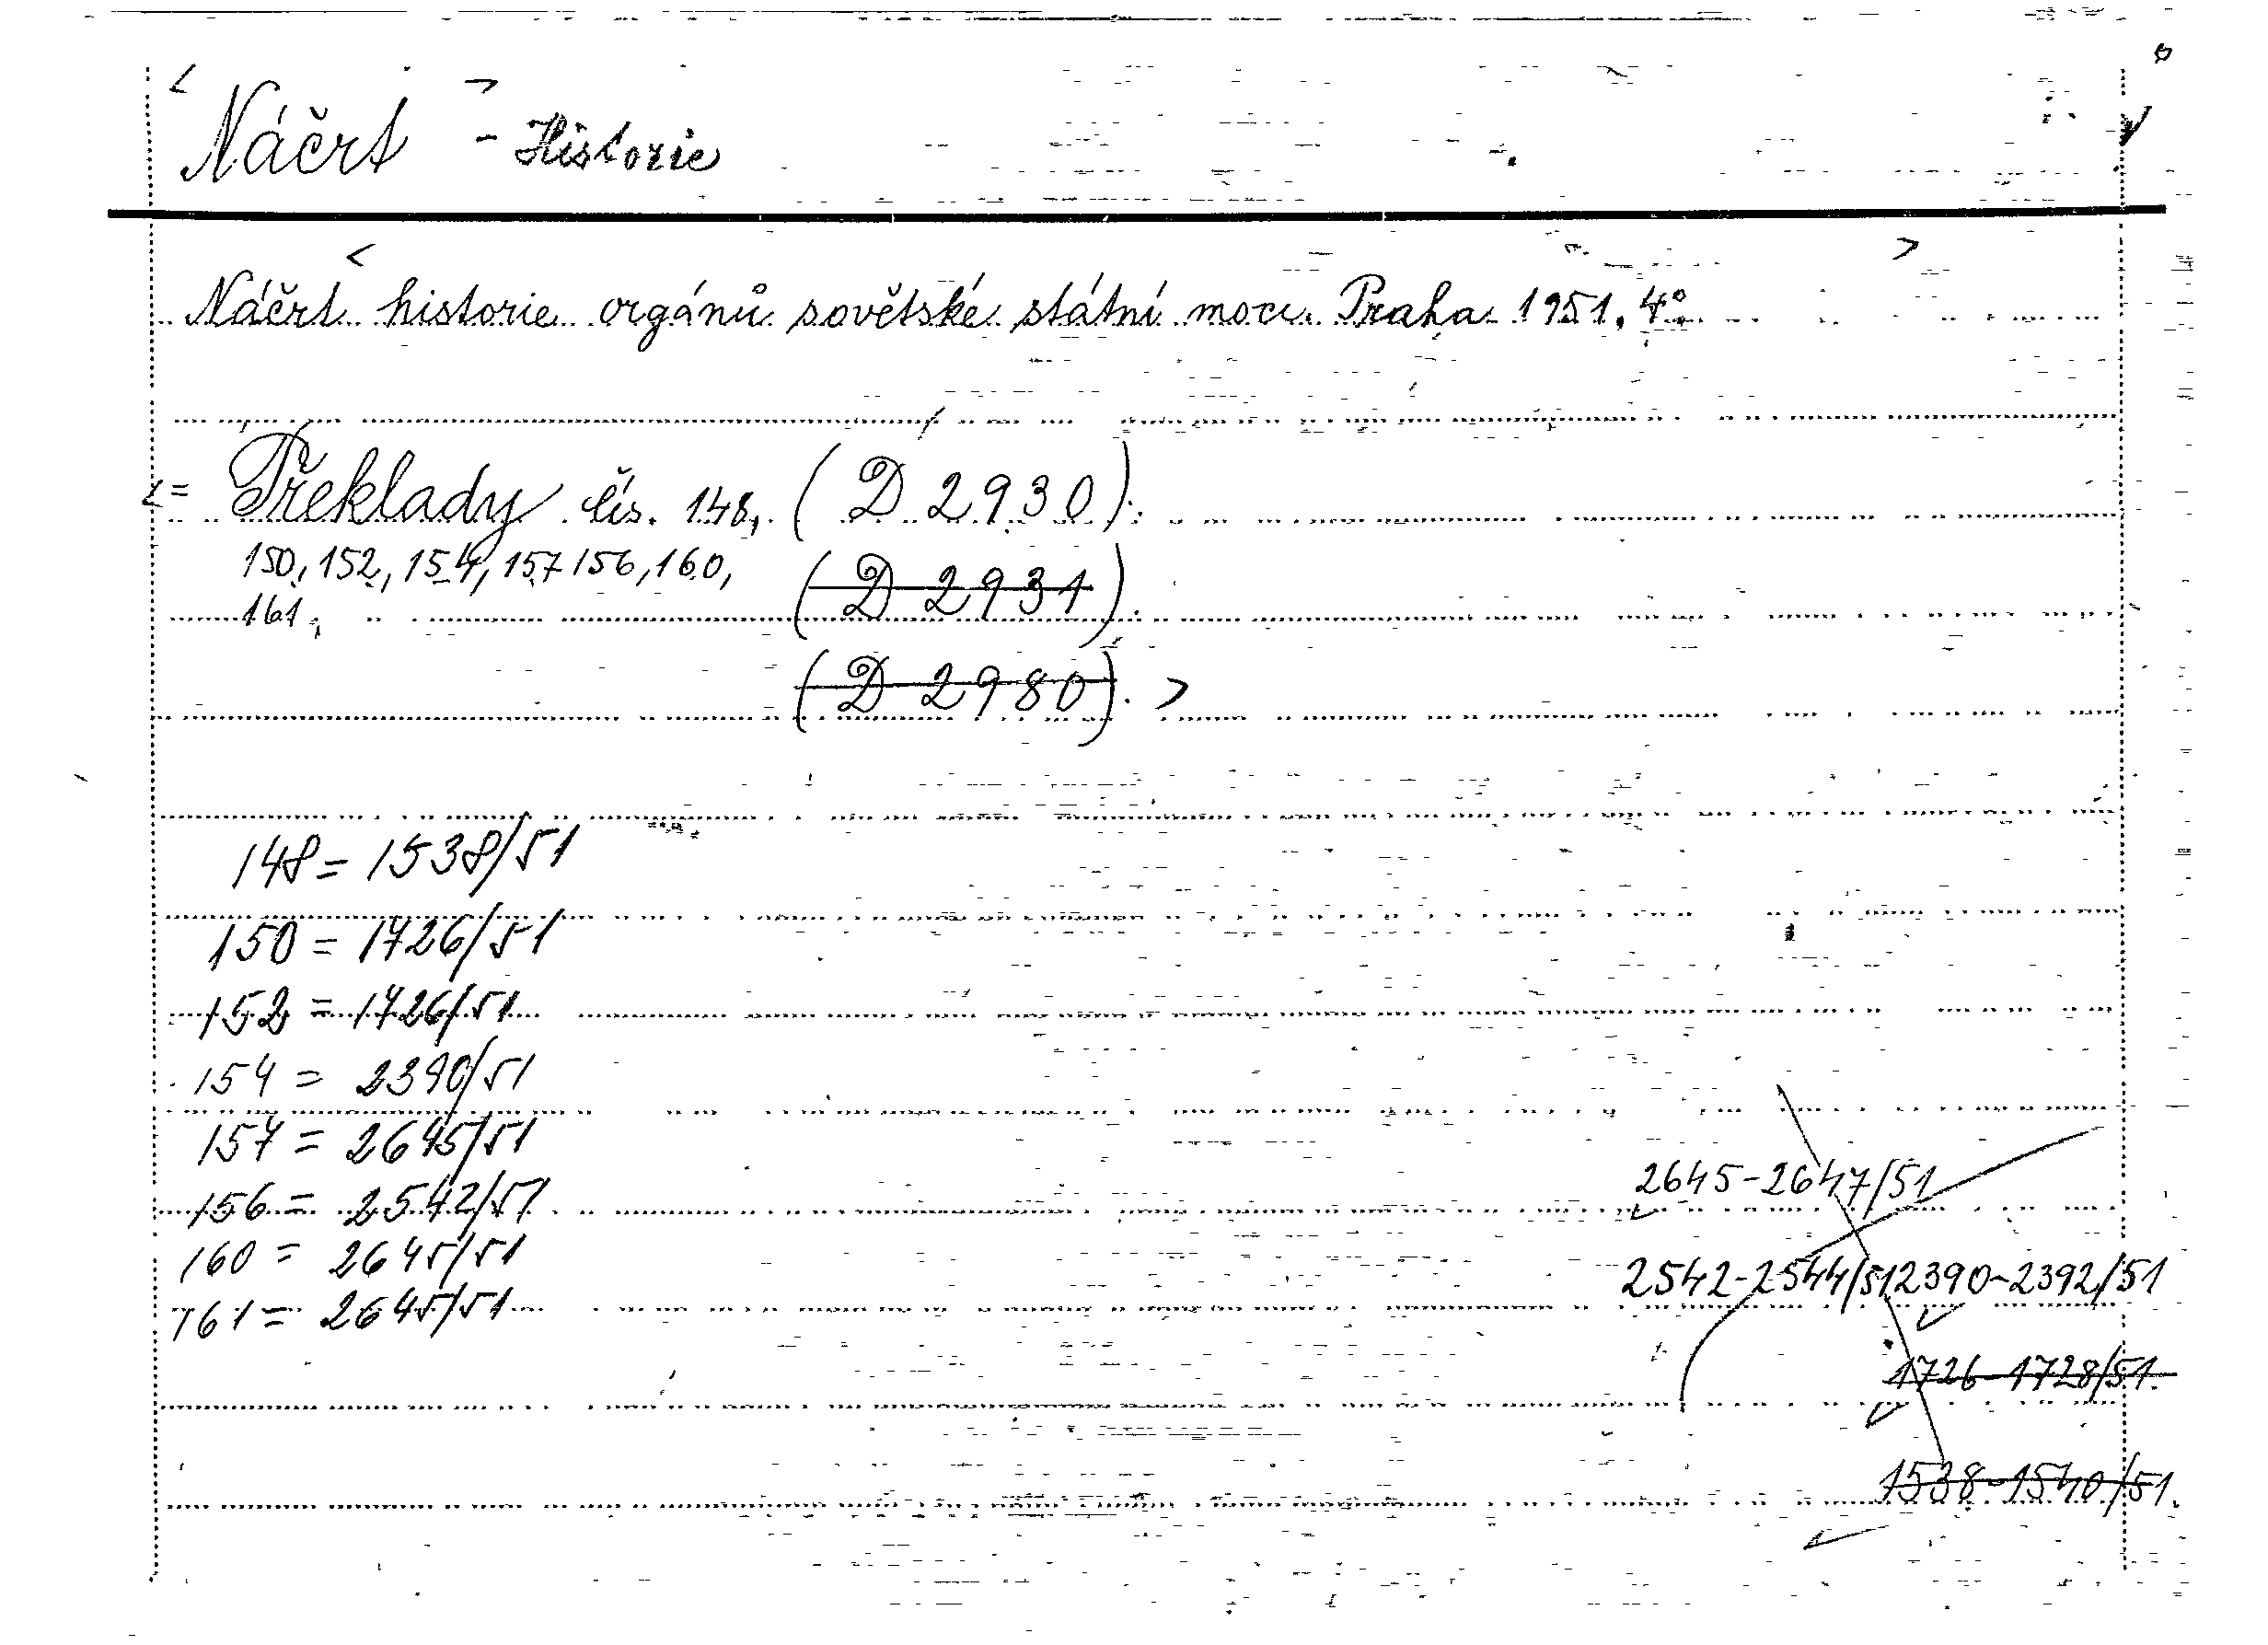 Náčrt - Historie
Náčrt historie orgánů sovětské státní moci. Praha 1951. 4°.
= Překlady čís. 148, (D 2930).
150, 152, 154, 157 156, 160, (D 2931).
161,
(D 2980).
148 = 1538/51
150 = 1726/51
152 = 1726/51
154 = 2390/51
157 = 2645/51
156 = 2542/51
160 = 2645/51
161 = 2645/51
2645-2647/51
2542-2544/51 2390-2392/51
1726-1728/51.
1538-1540/51.